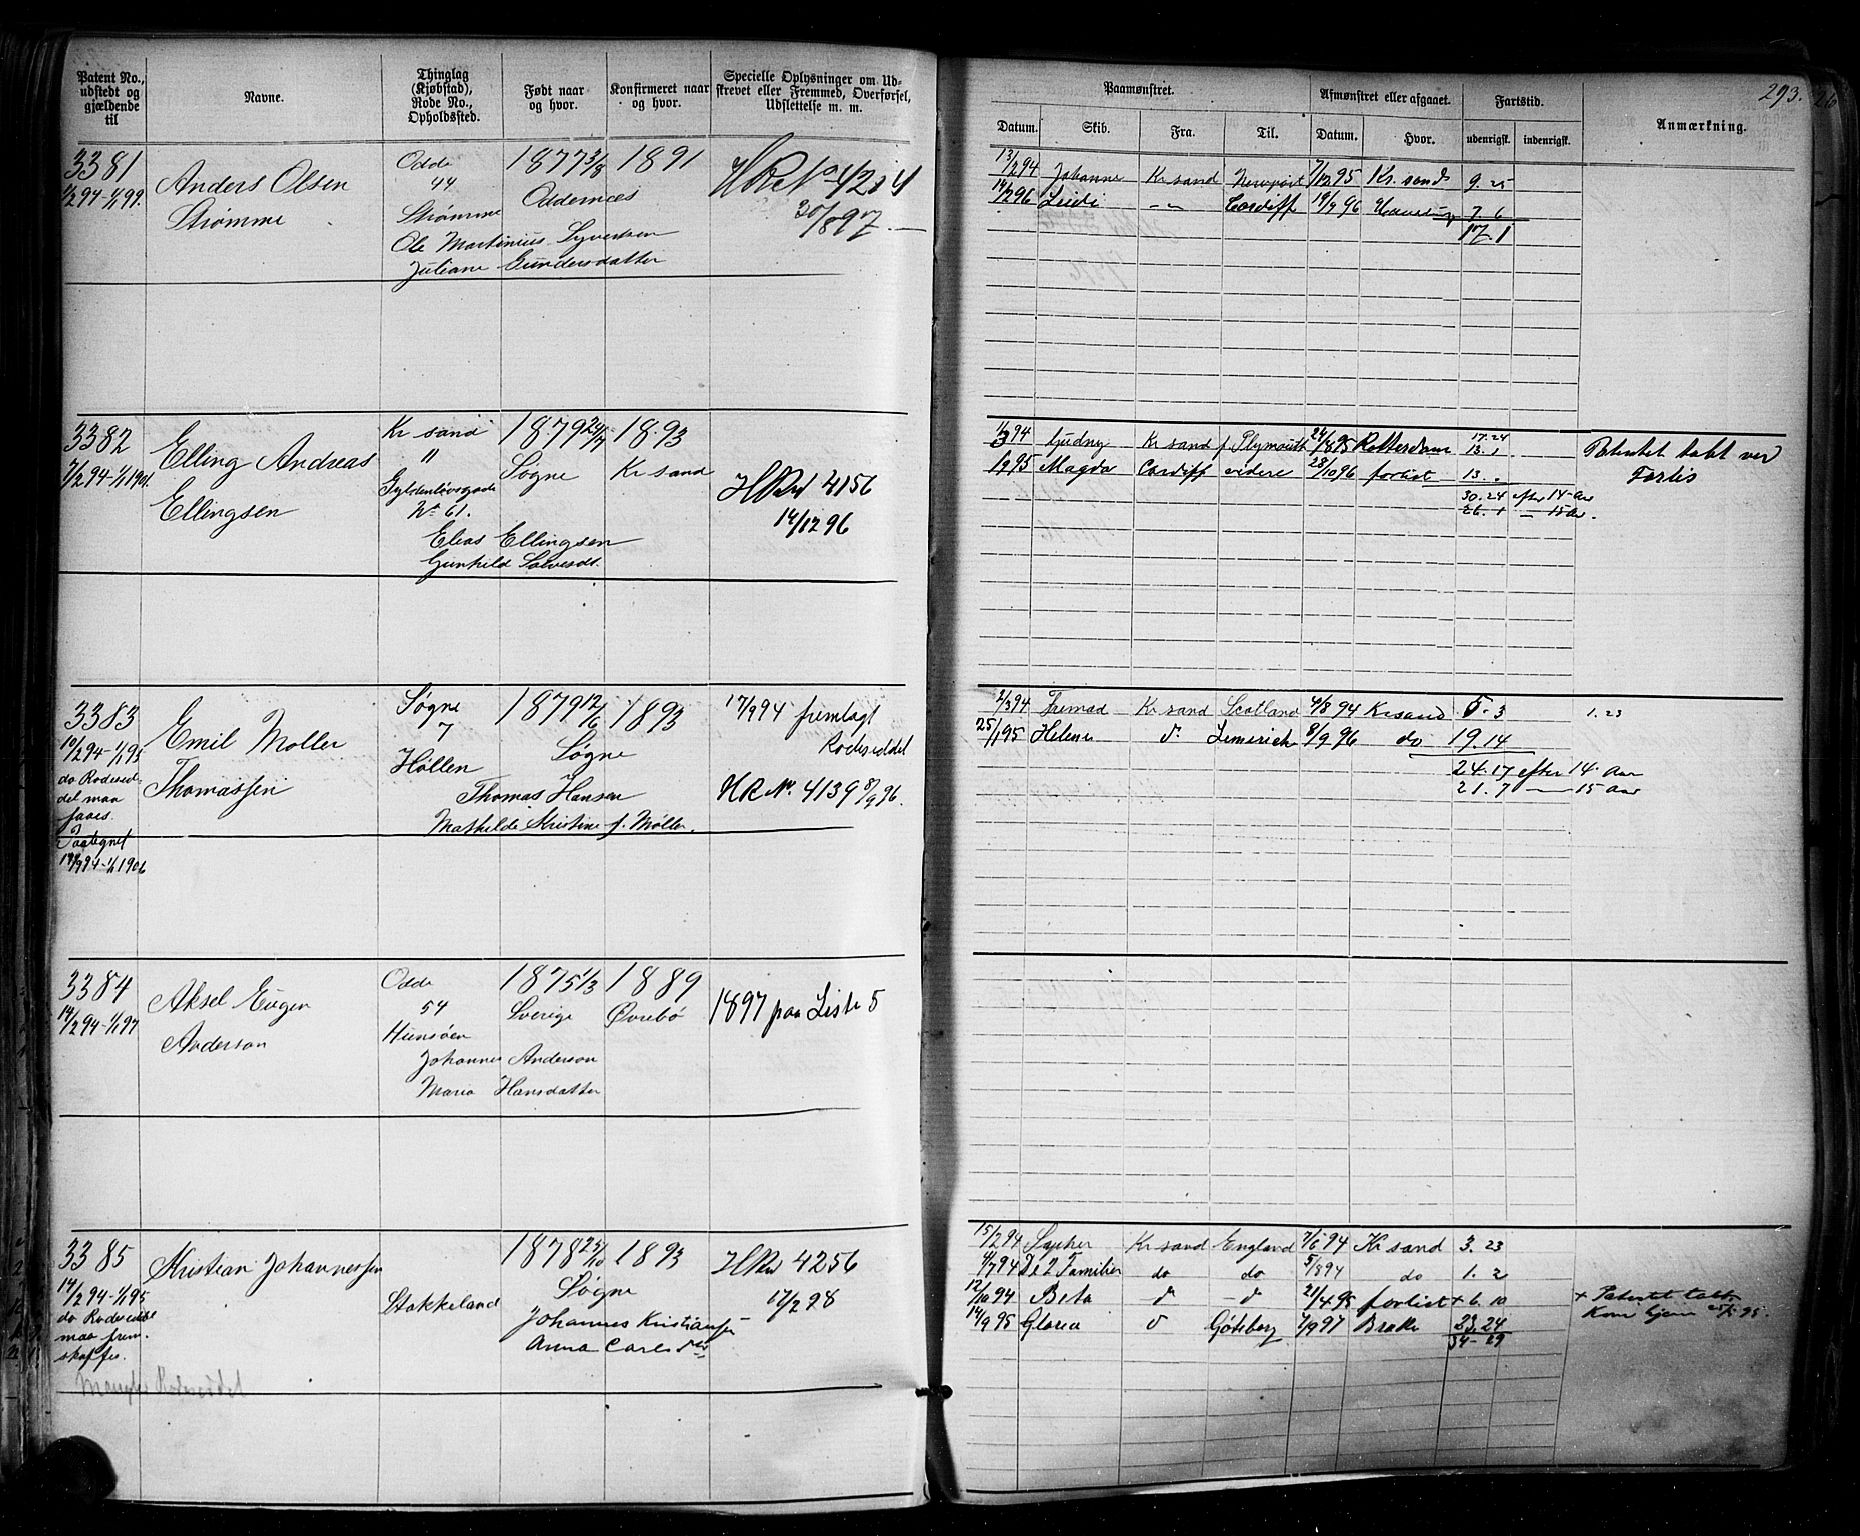 293. 26
Patent No., udstedt og gjældende til
Navne.
Thinglag (Kjøbstad), Rode No., Opholdssted.
Født naar og hvor.
Konfirmeret naar og hvor.
Specielle Oplysninger om Udskrevet eller Fremmed, Overførsel, Udslettelse m. m.
Paamønstret.
Afmønstret eller afgaaet.
Fartstid.
Anmærkning.
Datum. Skib. Fra. Til. Datum. Hvor. udenrigsk. indenrigsk.
3381 Anders Olsen Odde 1877 3/8 1891 HR No 4204
1/2 94-1/1 99. Strømme 44 Oddernæs 30/8 97.
Strømme
Ole Martinius Syvertsen
Juliane Gundersdatter
13/2 94 Johanne Kr sand Newport 7/12 95 Kr. sand 9. 25
14/2 96 Leidi -"- Cardiff 19/9 96 7 6
17. 1
3382 Elling Andreas Kr sand 1879 24/7 1893
7/2 94-1/1 1901. Ellingsen " Søgne Kr sand HR No 4156
Gyldenløvsgade 14/12 96
No 61.
Elias Ellingsen
Gunhild Salvesdt.
1/3 94 Gudny Kr sand f. Plymouth 24/8 95 Rotterdam 17. 24 Patentet tabt ved
13. 1
1/9 95 Magda Cardiff videre 28/10 96 forlist 13. " Forlis
30. 24 efter 14 Aar
26. 1 — 15 Aar.
3383 Emil Møller Søgne 1879 12/6 1893 17/9 94 fremlagt
10/2 94-1/1 95 Thomassen 7 Søgne Rodeseddel
do Rodeseddel maa faaes. Høllen HR No. 4139 8/9 96.
Thomas Hansen
Mathilde Kristine f. Møller.
Paategnet
17/9 94-1/1 1906
2/3 94 Fremad Kr sand Scotland 4/8 94 Kr sand 5. 3 1. 23
25/1 95 Helene do Limerick 8/9 96 do 19. 14
24. 17 efter 14 Aar
21. 7 — 15 Aar
3384 Aksel Eugen Odde 1875 1/3 1889 1897 paa Liste 5
14/2 94-1/1 97 Anderson 54 Sverige Øvrebø
Hunsøen
Johannes Anderson
Maria Hansdatter
3385 Kristian Johannessen 1878 25/10 1893 HR No 4256
14/2 94-1/1 95 Stokkeland Søgne 17/2 98
do Rodeseddel maa fremskaffes. Johannes Kristiansen
Anna Carlsdtr
Mangler Rodeseddel
15/2 94 Kr sand England 7/6 94 Kr sand 3. 23
4/7 94 De 2 Familier do do 5/8 94 do 1. 2
12/10 94 Beta do do 21/4 95 forlist + 6. 10 + Patentet tabt
14/9 95 Gloria do Göteborg 7/9 97 Brake 23. 24 Kom hjem 25/5 95
34-29